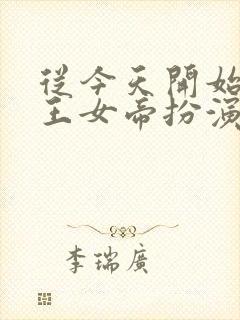 從今天開始
王女帝扮演
李瑞廣